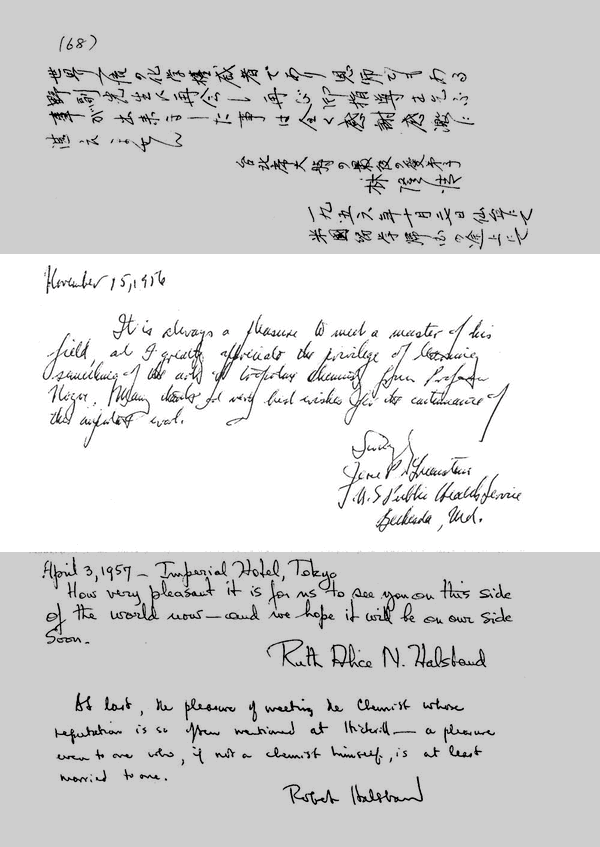 (68)
世界一流の化学権威者であり恩師でもある
野副先生に再会し再び御指導をえる
事が出来ました事は全く感謝感激に
堪えません
台北帝大時の最後の愛弟子
林隆清
一九五六年十月六日仙台にて
米国留学帰りの途上にて
November 15, 1956
It is always a pleasure to meet a master of his
field, and I greatly appreciate the privilege of learning
something of the art of tropolone chemistry from Professor
Nozoe. Many thanks and very best wishes for the continuance of
this important work.
Sincerely,
Jesse P. Greenstein
U.S. Public Health Service
Bethesda, Md.
April 3, 1957 — Imperial Hotel, Tokyo
How very pleasant it is for us to see you on this side
of the world now — and we hope it will be on our side
soon.
Ruth Alice N. Halsband
At last, the pleasure of meeting the chemist whose
reputation is so often mentioned at — a pleasure
even to one who, if not a chemist himself, is at least
married to one.
Robert Halsband